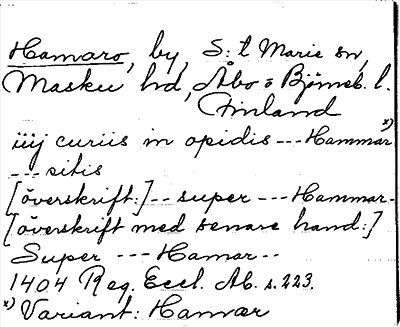 Hamaro, by, S:t Marie sn,
Masku hd, Åbo o Björneb. l.
Finland
iiij curiis in opidis --- Hammar x)
--- sitis
[överskrift:] -- super --- Hammar-
[överskrift med senare hand:]
Super --- Hamar --
1404 Reg. Eccl. Ab. s. 223.
x) Variant: Hamar